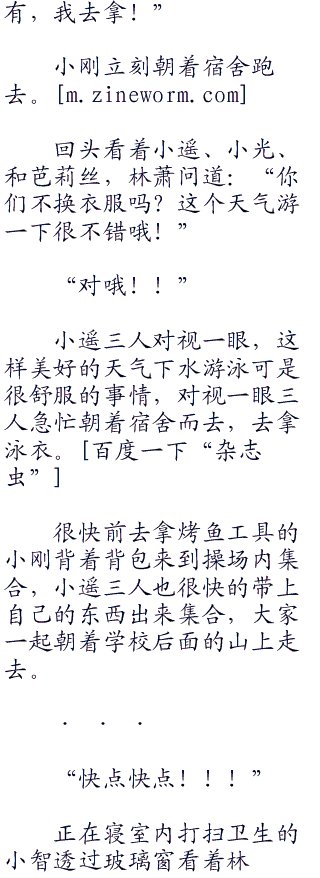 有，我去拿！”
小刚立刻朝着宿舍跑
去。[m.zineworm.com]
回头看着小遥、小光、
和芭莉丝，林萧问道：“你
们不换衣服吗？这个天气游
一下很不错哦！”
“对哦！！”
小遥三人对视一眼，这
样美好的天气下水游泳可是
很舒服的事情，对视一眼三
人急忙朝着宿舍而去，去拿
泳衣。[百度一下“杂志
虫”]
很快前去拿烤鱼工具的
小刚背着背包来到操场内集
合，小遥三人也很快的带上
自己的东西出来集合，大家
一起朝着学校后面的山上走
去。
. . .
“快点快点！！！”
正在寝室内打扫卫生的
小智透过玻璃窗看着林